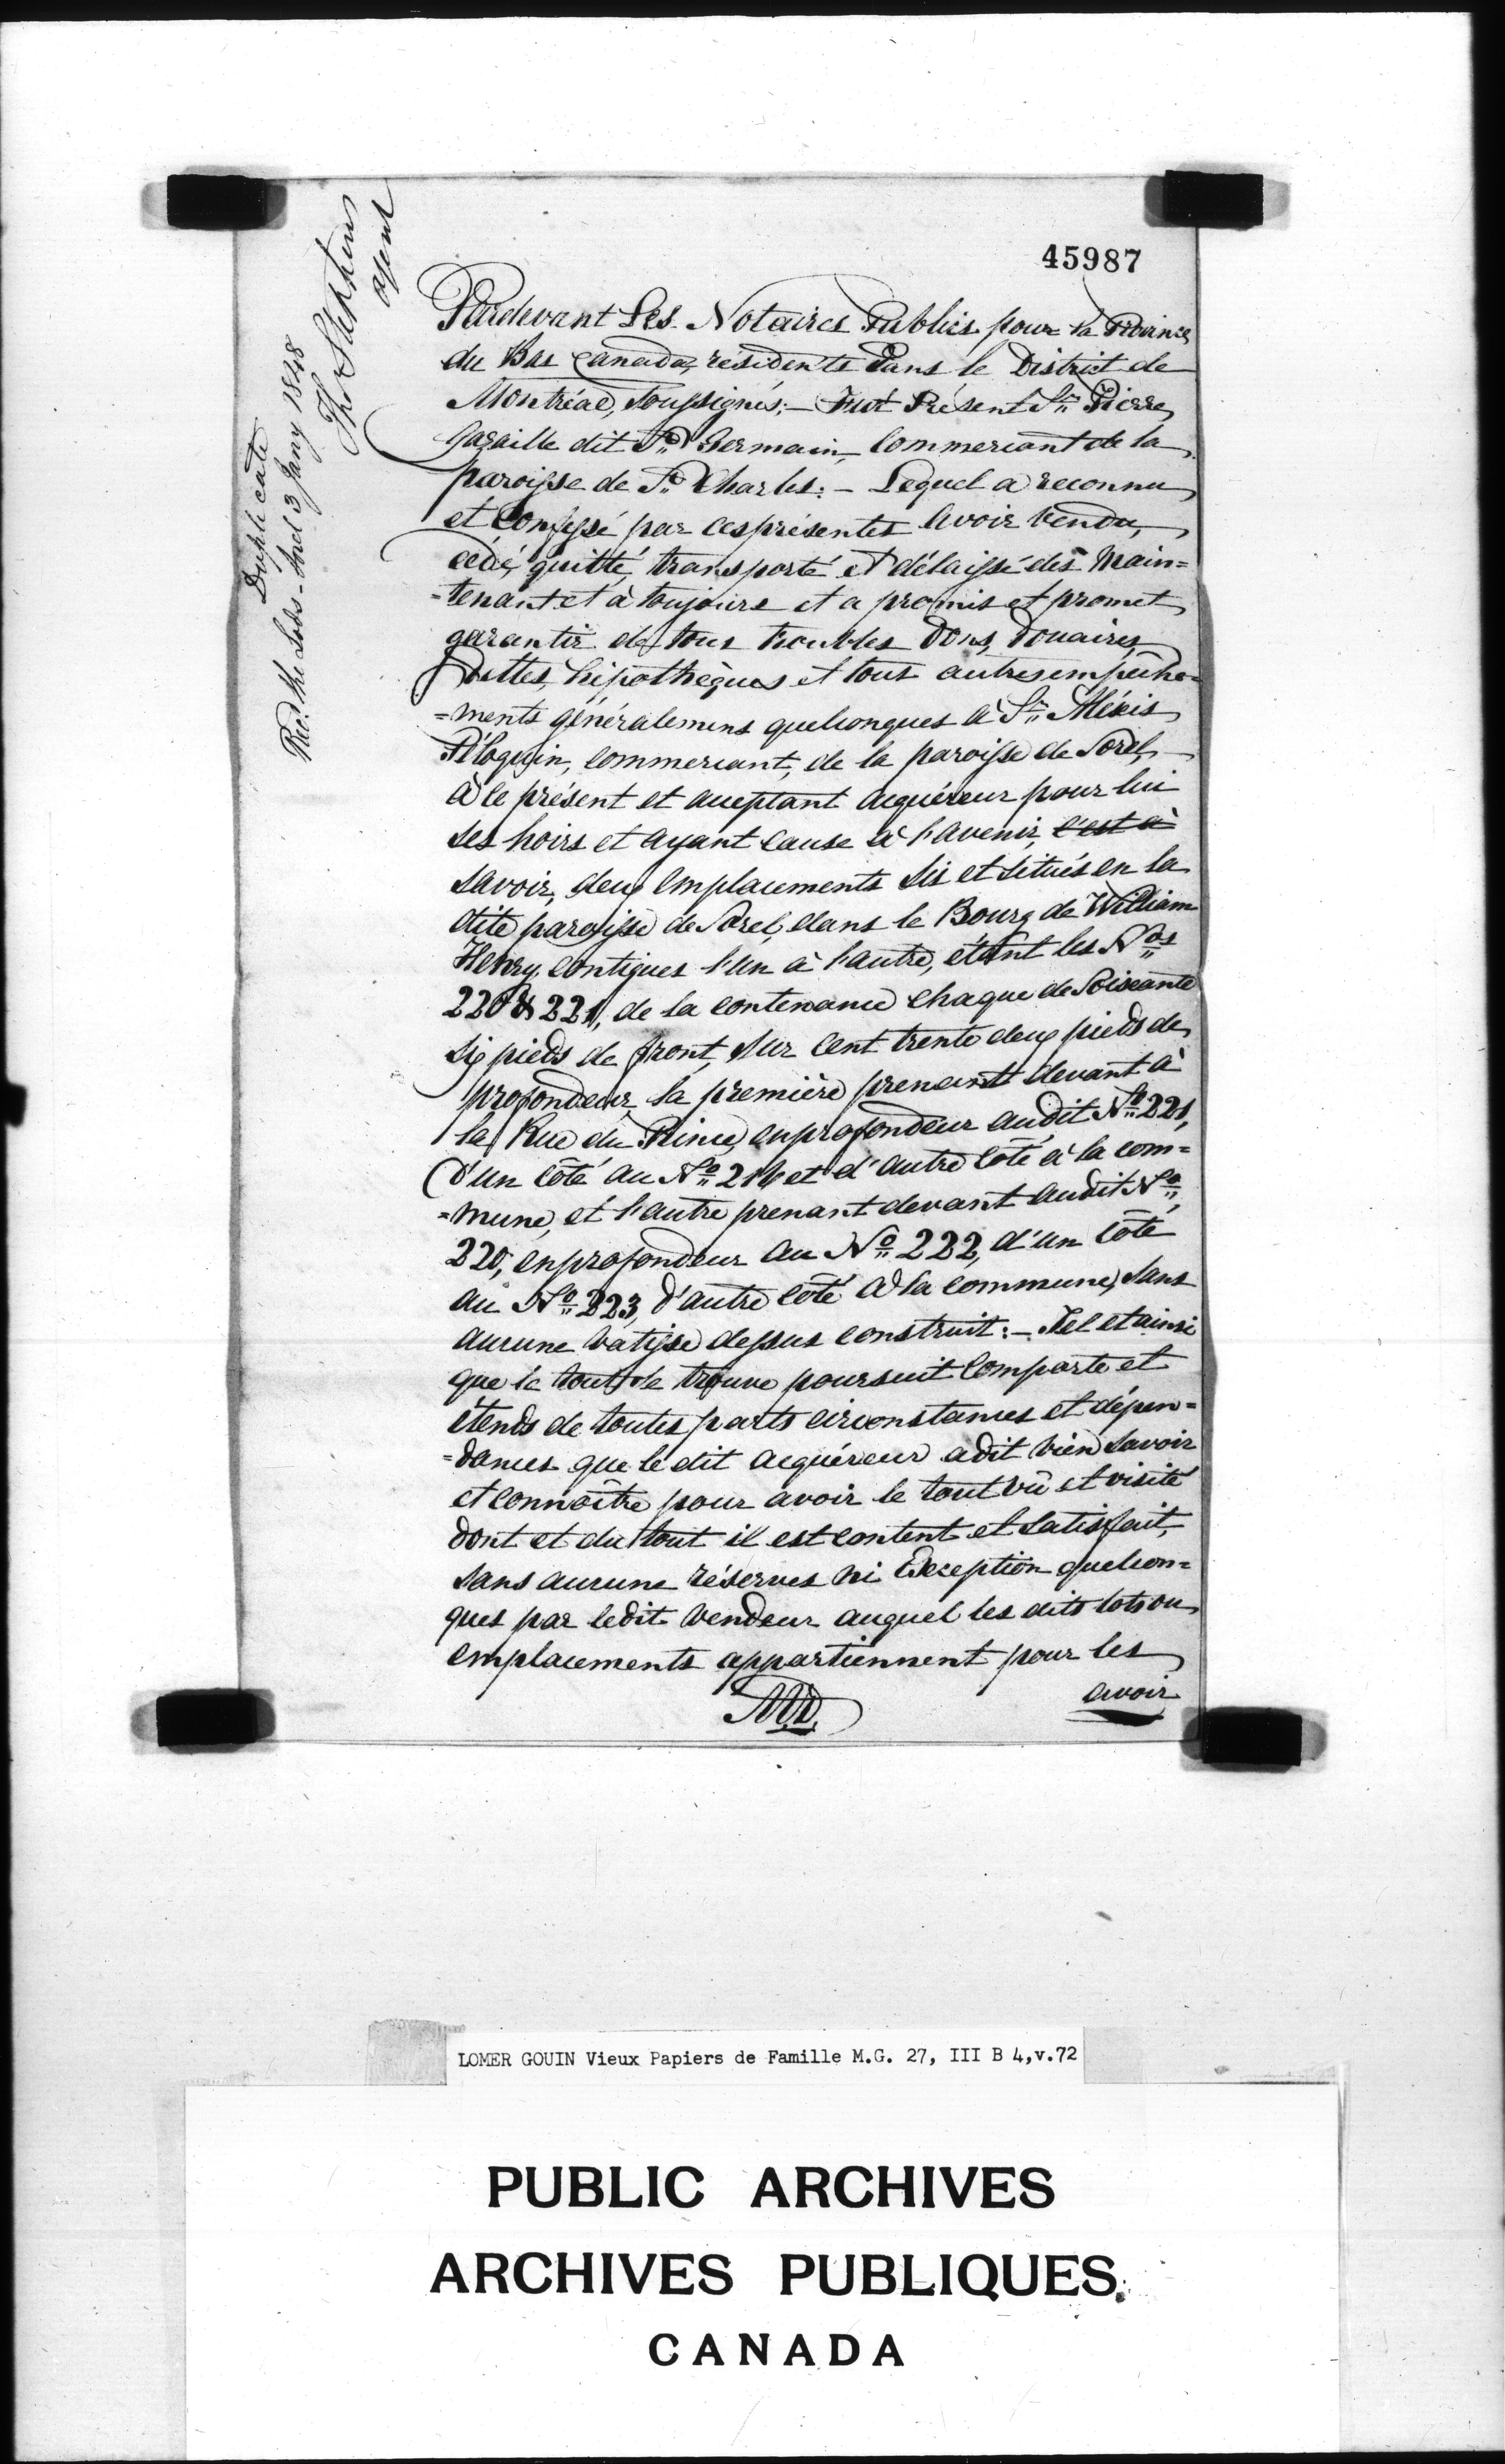 45987
Duplicate
Rec'd the Lods - Sorel 3 Jany 1848
Thos Stephens
agent
Pardevant Les Notaires Publics pour la Province
du Bas Canada, résidents dans le District de
Montréal, soussignés; – Fut Présent Sr. Pierre
Gazaille dit St. Germain, Commercant de la
paroisse de St. Charles: – Lequel a reconnu
et Confessé par ces présentes avoir Vendu,
cédé, quitté, transporté et délaissé dès Main=
=tenant et à toujours et a promis et promet
garantir de tous troubles Dons, Douaires,
Dettes, hipothèques et tous autres empêche=
=ments généralemens quelconques à Sr. Aléxis
Péloquin, commercant, de la paroisse de Sorel, –
à ce présent et acceptant acquéreur pour lui
ses hoirs et ayant cause à l'avenir, c'est à
savoir, deux emplacements sis et situés en la
dite paroisse de Sorel, dans le Bourg de William
Henry, contigues l'un à l'autre, étant les Nos
220 & 221, de la contenance chaque de Soiscante
six pieds de front, sur cent trente deux pieds de
profondeur, la première prenant devant à
la Rue du Prince, en profondeur audit No. 221,
d'un côté au No. 216 et d'autre côté à la com=
=mune, et l'autre prenant devant audit No.
220, en profondeur au No. 222, d'un côté
au No. 223, d'autre côté à la commune, sans
aucune batisse dessus construit: – Tel et ainsi
que le tout se trouve poursuit Comporte et
étends de toutes parts circonstances et dépen=
=dances que le dit acquéreur a dit bien savoir
et connoître pour avoir le tout vû et visité
dont et du tout il est content et satisfait,
sans aucune réserves ni Exception quelcon=
ques par ledit Vendeur auquel les dits lots ou
emplacements appartiennent pour les
avoir
LOMER GOUIN Vieux Papiers de Famille M.G. 27, III B 4,v.72
PUBLIC ARCHIVES
ARCHIVES PUBLIQUES
CANADA